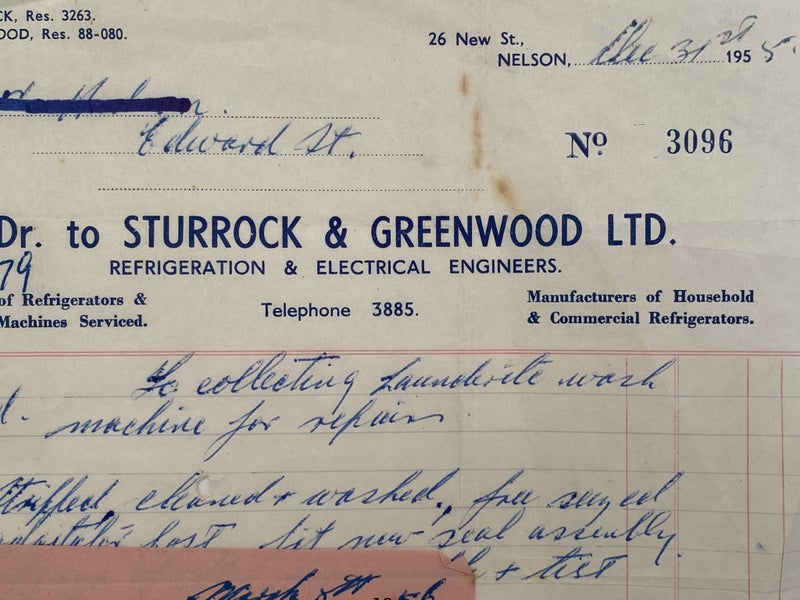 CK, Res. 3263.
OOD, Res. 88-080.
26 New St.,
NELSON, Dec 31st 1955.
Edward St.
No 3096
Dr. to STURROCK & GREENWOOD LTD.
79
REFRIGERATION & ELECTRICAL ENGINEERS.
of Refrigerators &
Machines Serviced.
Telephone 3885.
Manufacturers of Household
& Commercial Refrigerators.
To collecting Launderite wash
d. machine for repairs.
Stripped, cleaned + washed, free seized
post fit new seal assembly.
+ test
March 1956